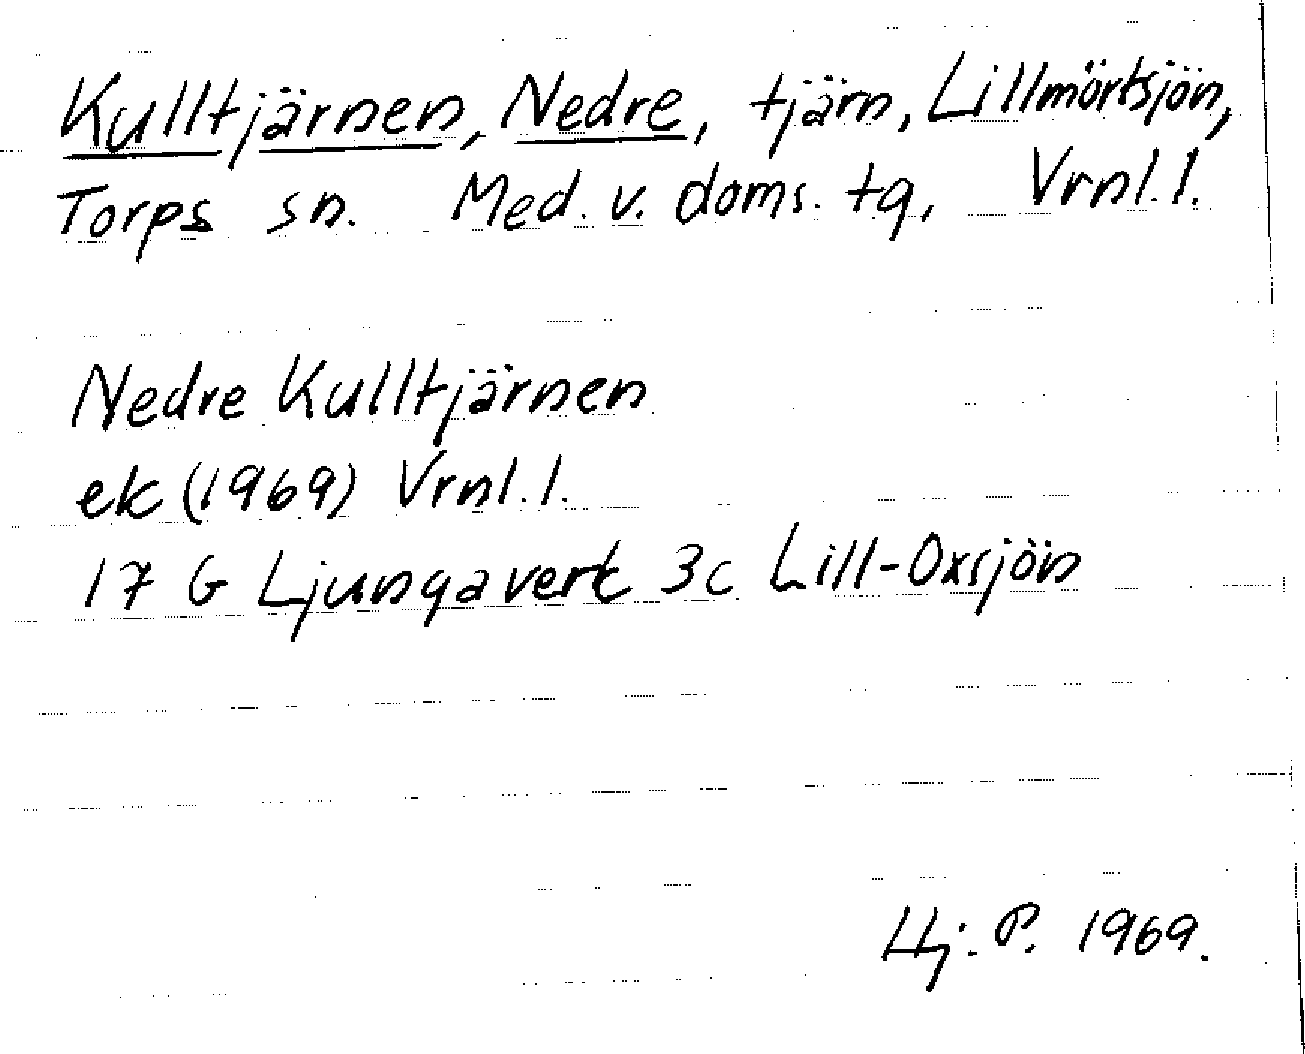 Kulltjärnen, Nedre, tjärn, Lillmörtsjön,
Torps sn. Med. v. doms. tg, Vrnl. l.
Nedre Kulltjärnen
ek (1969) Vrnl. l.
17 G Ljungaverk 3c Lill-Oxsjön
Hj. P. 1969.